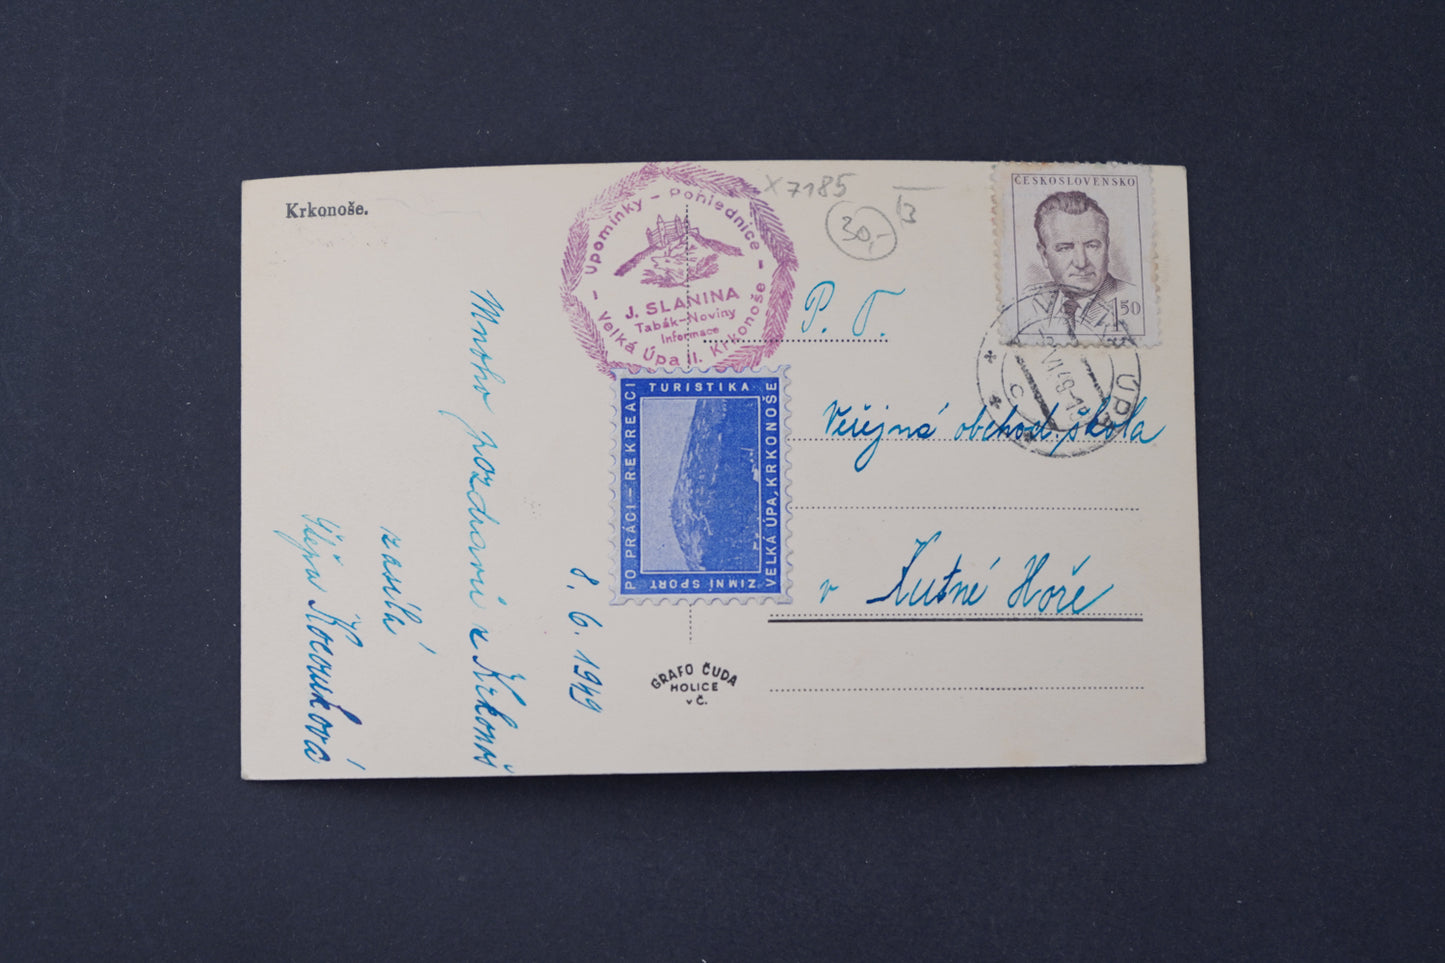 Krkonoše.
Upomínky - Pohlednice
J. SLANINA
Tabák-Noviny
Informace
Velká Úpa II. Krkonoše
x 7185
30,-
ČESKOSLOVENSKO
1.50
ÚPA
PO PRÁCI — REKREACI
TURISTIKA
VELKÁ ÚPA, KRKONOŠE
ZIMNÍ SPORT
8. 6. 1949
Mnoho pozdravů z Krkonoš
zasílá
Kocourková
P. T.
Veřejná obchod. škola
v Kutné Hoře
GRAFO ČUDA
HOLICE
v Č.